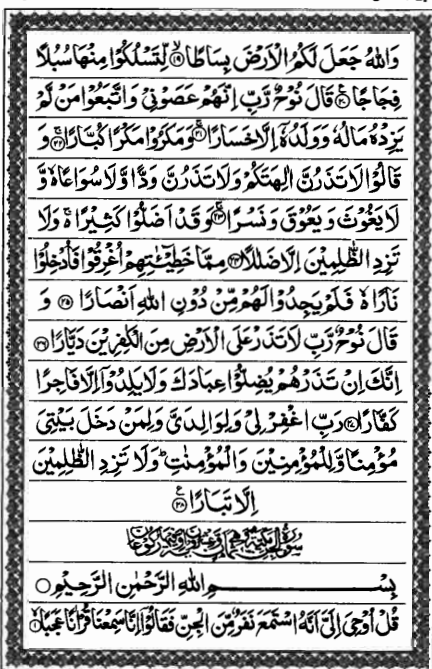 وَاللّٰهُ جَعَلَ لَكُمُ الْاَرْضَ بِسَاطًا ۙ﴿۱۹﴾ لِّتَسْلُكُوْا مِنْهَا سُبُلًا
فِجَاجًا ﴿۲۰﴾ قَالَ نُوْحٌ رَّبِّ اِنَّهُمْ عَصَوْنِیْ وَاتَّبَعُوْا مَنْ لَّمْ
یَزِدْهُ مَالُهٗ وَوَلَدُهٗۤ اِلَّا خَسَارًا ﴿۲۱﴾ وَمَكَرُوْا مَكْرًا كُبَّارًا ﴿۲۲﴾ وَ
قَالُوْا لَا تَذَرُنَّ اٰلِهَتَكُمْ وَلَا تَذَرُنَّ وَدًّا وَّلَا سُوَاعًا ۙ وَّ
لَا یَغُوْثَ وَیَعُوْقَ وَنَسْرًا ﴿۲۳﴾ وَقَدْ اَضَلُّوْا كَثِیْرًا ۚ وَلَا
تَزِدِ الظّٰلِمِیْنَ اِلَّا ضَلٰلًا ﴿۲۴﴾ مِمَّا خَطِیْٓـٰٔتِهِمْ اُغْرِقُوْا فَاُدْخِلُوْا
نَارًا ۙ فَلَمْ یَجِدُوْا لَهُمْ مِّنْ دُوْنِ اللّٰهِ اَنْصَارًا ﴿۲۵﴾ وَ
قَالَ نُوْحٌ رَّبِّ لَا تَذَرْ عَلَی الْاَرْضِ مِنَ الْكٰفِرِیْنَ دَیَّارًا ﴿۲۶﴾
اِنَّكَ اِنْ تَذَرْهُمْ یُضِلُّوْا عِبَادَكَ وَلَا یَلِدُوْۤا اِلَّا فَاجِرًا
كَفَّارًا ﴿۲۷﴾ رَبِّ اغْفِرْ لِیْ وَلِوَالِدَیَّ وَلِمَنْ دَخَلَ بَیْتِیَ
مُؤْمِنًا وَّلِلْمُؤْمِنِیْنَ وَالْمُؤْمِنٰتِ ؕ وَلَا تَزِدِ الظّٰلِمِیْنَ
اِلَّا تَبَارًا ﴿۲۸﴾
بِسْمِ اللّٰهِ الرَّحْمٰنِ الرَّحِیْمِ
قُلْ اُوْحِیَ اِلَیَّ اَنَّهُ اسْتَمَعَ نَفَرٌ مِّنَ الْجِنِّ فَقَالُوْۤا اِنَّا سَمِعْنَا قُرْاٰنًا عَجَبًا ۙ﴿۱﴾